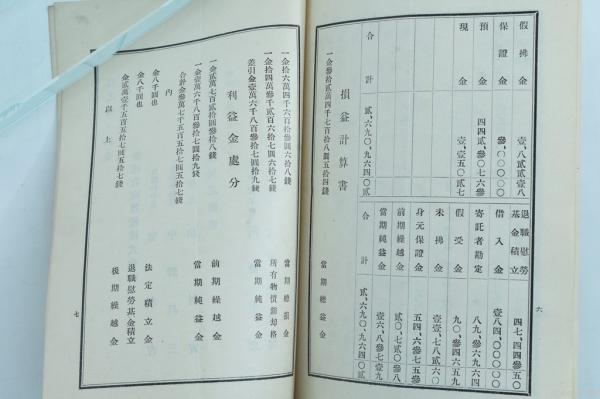 假拂金 壹、八貳貳壹八
保證金 參〇〇〇〇〇
預金 四四貳、參〇七六參
現金 壹、壹五〇貳七
合計 貳、六九〇、九六四〇貳
退職慰勞基金積立 四七、四四參五〇
借入金 壹八四、〇〇〇〇〇
寄託者勘定 八九、九六四
假受金 九〇、參四六五九
未拂金 壹壹、七八貳六〇
身元保證金 五四、六參五七
前期繰越金 貳〇、七貳〇參八
當期純益金 壹六、八參七壹九
合計 貳、六九〇、九六四〇貳
損益計算書
一金參拾貳萬四千七百拾八圓五拾四錢 當期總益金
六
一金拾六萬四千六百拾參圓六拾八錢 當期總損金
一金拾四萬參千貳百六拾七圓六拾七錢 所有物價銷却格
差引金壹萬六千八百參拾七圓拾九錢 當期純益金
利益金處分
一金貳萬七百貳拾圓參拾八錢 前期繰越金
一金壹萬六千八百參拾七圓拾九錢 當期純益金
合計金參萬七千五百五拾七圓五拾七錢
內
金八千圓也 法定積立金
金八千圓也 退職慰勞基金積立
金貳萬壹千五百五拾七圓五拾七錢 後期繰越金
以上
七